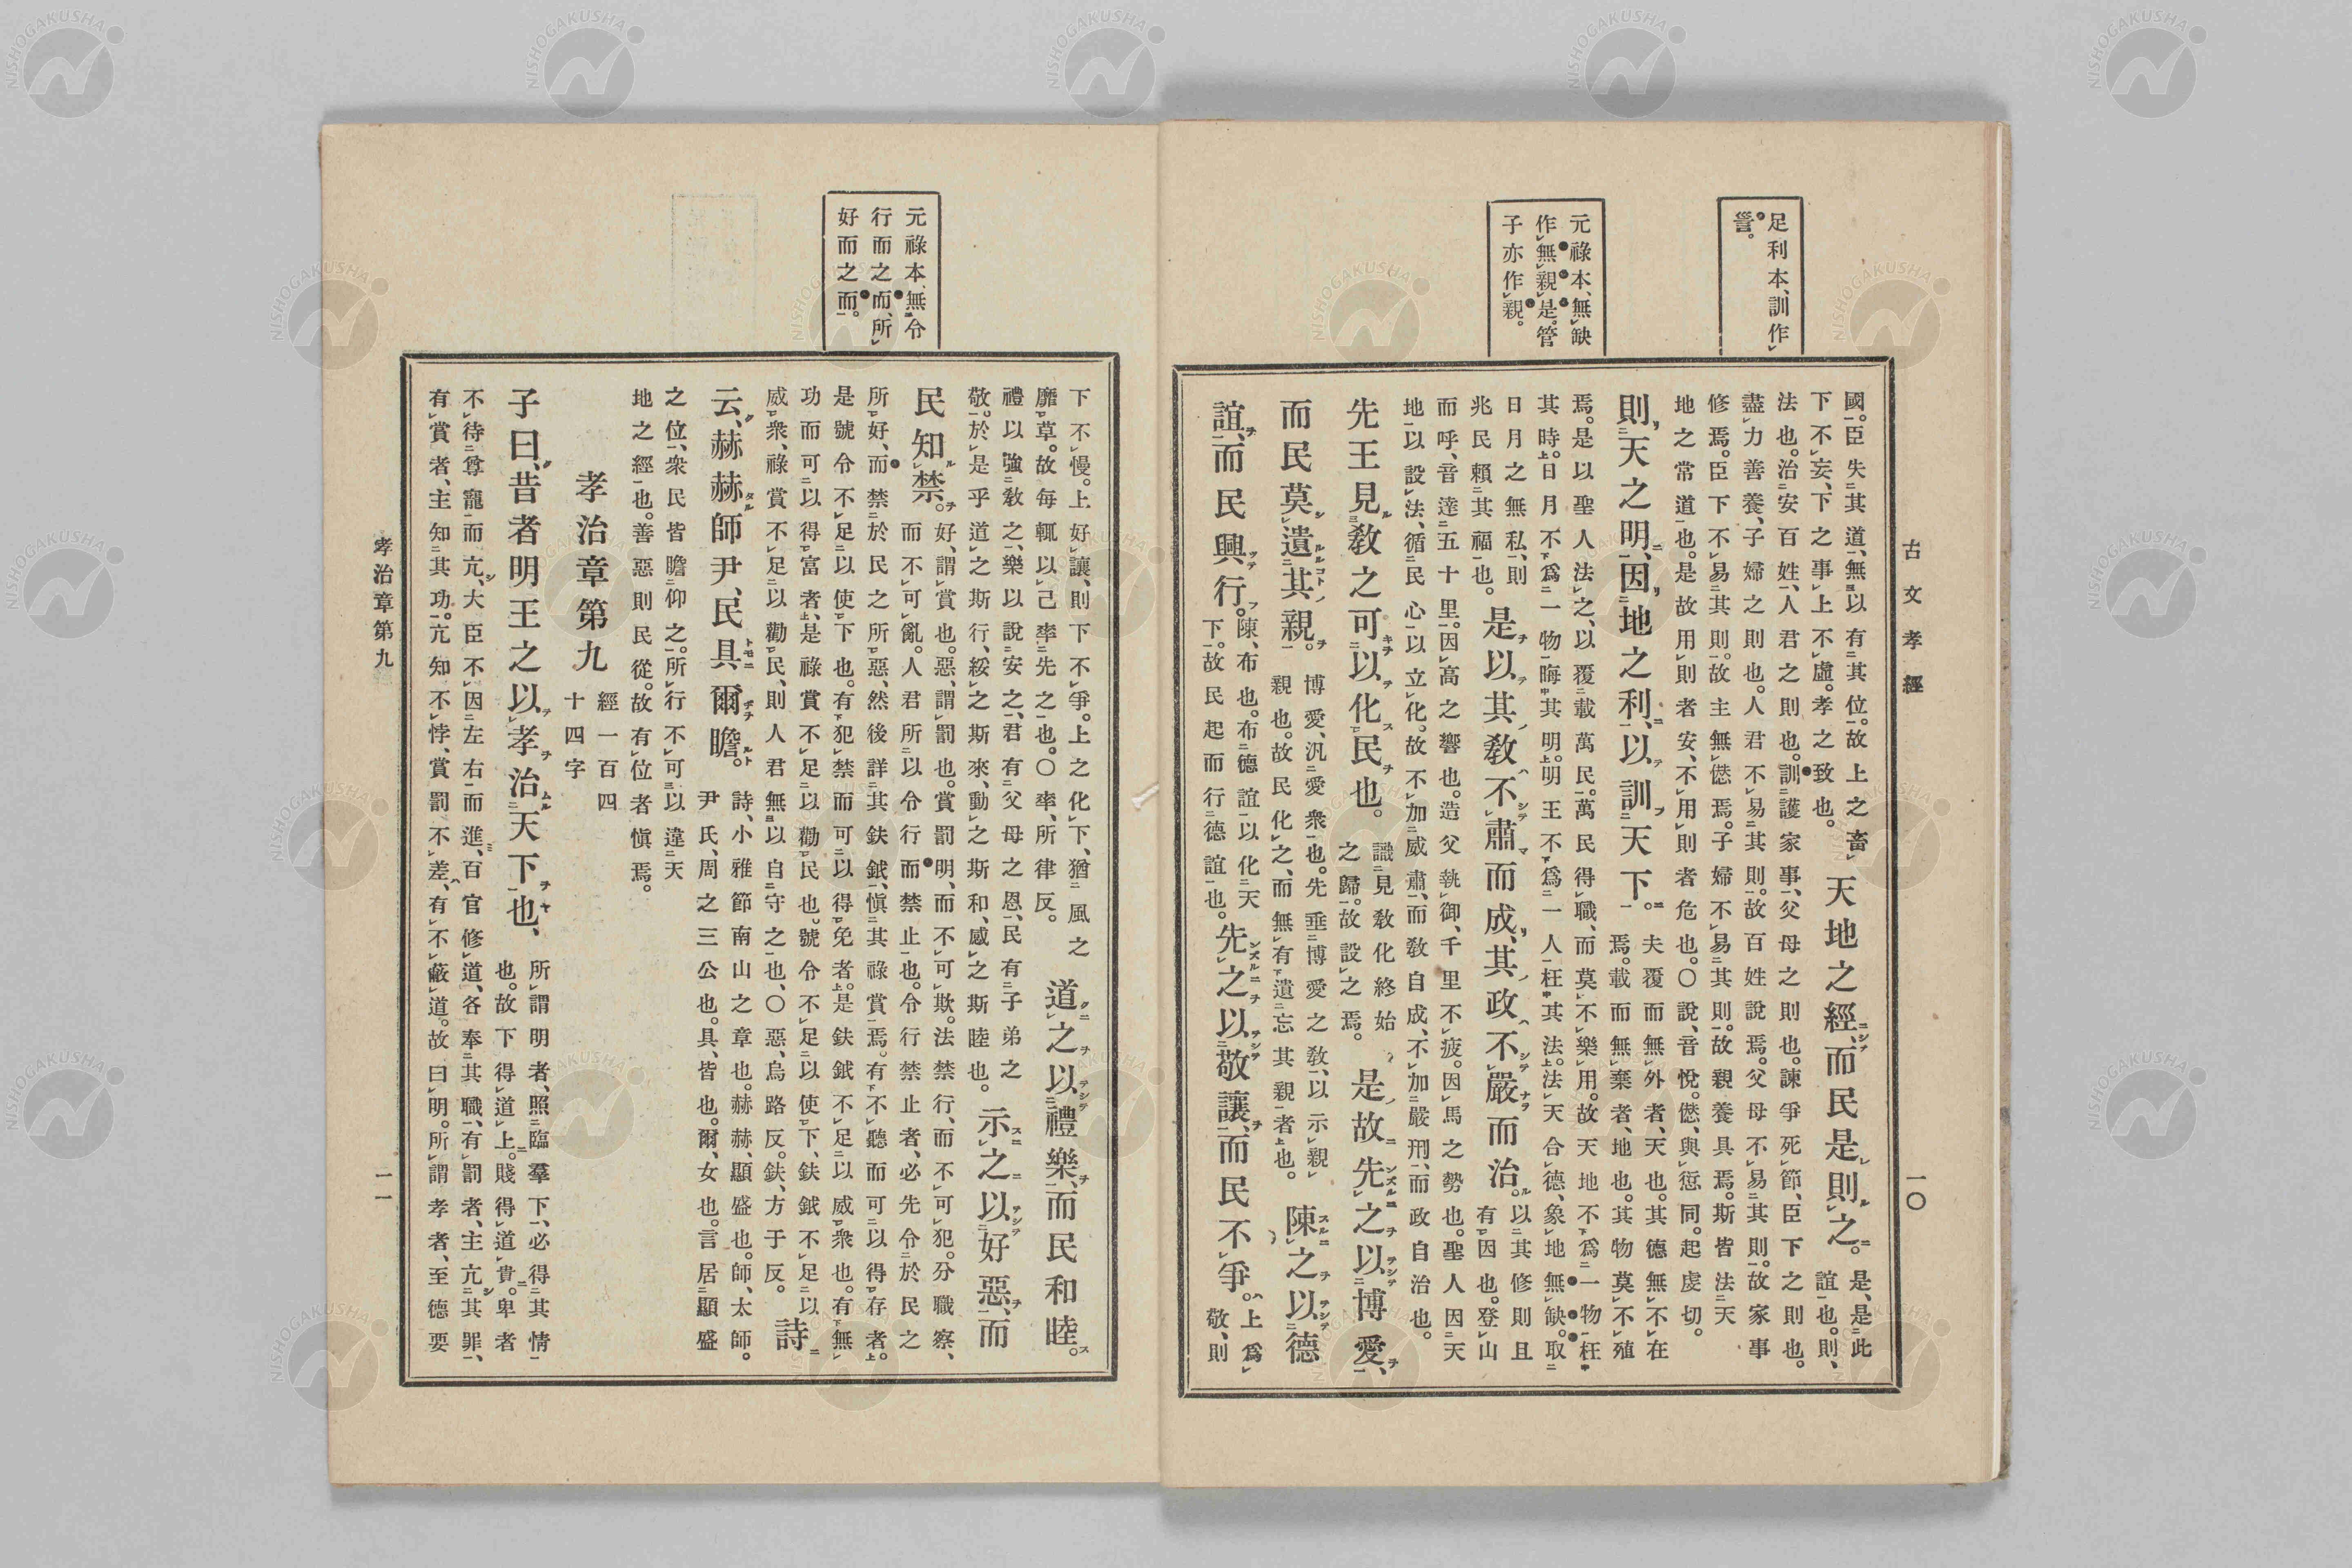 古文孝經
一〇
足利本、訓作
誉。
元祿本、無缺
作無親是。管
子亦作親。
國。臣失其道、無以有其位。故上之畜
下不妄、下之事上不虛。孝之致也。
天地之經、而民是則之。
是、是此
誼也。則、
法也。治安百姓、人君之則也。訓護家事、父母之則也。諫爭死節、臣下之則也。
盡力善養、子婦之則也。人君不易其則。故百姓說焉。父母不易其則。故家事
修焉。臣下不易其則。故主無愆焉。子婦不易其則。故親養具焉。斯皆法天
地之常道也。是故用則者安、不用則者危也。〇說、音悅。愆、與愆同。起虔切。
則天之明、因地之利、以訓天下。
夫覆而無外者、天也。其德無不在
焉。載而無棄者、地也。其物莫不殖
焉。是以聖人法之、以覆載萬民。萬民得職、而莫不樂用。故天地不爲一物枉
其時。日月不爲一物晦其明。明王不爲一人枉其法。法天合德、象地無缺。取
日月之無私、則
兆民賴其福也。
是以其敎不肅而成、其政不嚴而治。
以其修則且
有因也。登山
而呼、音達五十里。因高之響也。造父執御、千里不疲。因馬之勢也。聖人因天
地以設法、循民心以立化。故不加威肅、而敎自成、不加嚴刑、而政自治也。
先王見敎之可以化民也。
識見敎化終始
之歸。故設之焉。
是故先之以博愛、
而民莫遺其親。
博愛、汎愛衆也。先垂博愛之敎、以示親
親也。故民化之、而無有遺忘其親者也。
陳之以德
誼、而民興行。
陳、布也。布德誼以化天
下。故民起而行德誼也。
先之以敬讓、而民不爭。
上爲
敬、則
元祿本、無令
行而之而、所
好而之而。
下不慢。上好讓、則下不爭。上之化下、猶風之
靡草。故每輒以己率先之也。〇率、所律反。
道之以禮樂、而民和睦。
禮以強敎之、樂以說安之、君有父母之恩、民有子弟之
敬。於是乎道之斯行、綏之斯來、動之斯和、感之斯睦也。
示之以好惡、而
民知禁。
好、謂賞也。惡、謂罰也。賞罰明、而不可欺。法禁行、而不可犯。分職察、
而不可亂。人君所以令行而禁止也。令行禁止者、必先令於民之
所好、而禁於民之所惡、然後詳其鈇鉞、愼其祿賞焉。有不聽而可以得存者。
是號令不足以使下也。有犯禁而可以得免者。是鈇鉞不足以威衆也。有無
功而可以得富者、是祿賞不足以勸民也。號令不足以使下、鈇鉞不足以
威衆、祿賞不足以勸民、則人君無以自守之也、〇惡、烏路反。鈇、方于反。
詩
云、赫赫師尹、民具爾瞻。
詩、小雅節南山之章也。赫赫、顯盛也。師、太師。
尹氏、周之三公也。具、皆也。爾、女也。言居顯盛
之位、衆民皆瞻仰之。所行不可以違天
地之經也。善惡則民從。故有位者愼焉。
孝治章第九
經一百四
十四字
子曰、昔者明王之以孝治天下也、
所謂明者、照臨羣下、必得其情
也。故下得道上。賤得道貴。卑者
不待尊寵而亢、大臣不因左右而進、百官修道、各奉其職、有罰者、主亢其罪、
有賞者、主知其功。亢知不悖、賞罰不差、有不蔽道。故曰明。所謂孝者、至德要
孝治章第九
一一